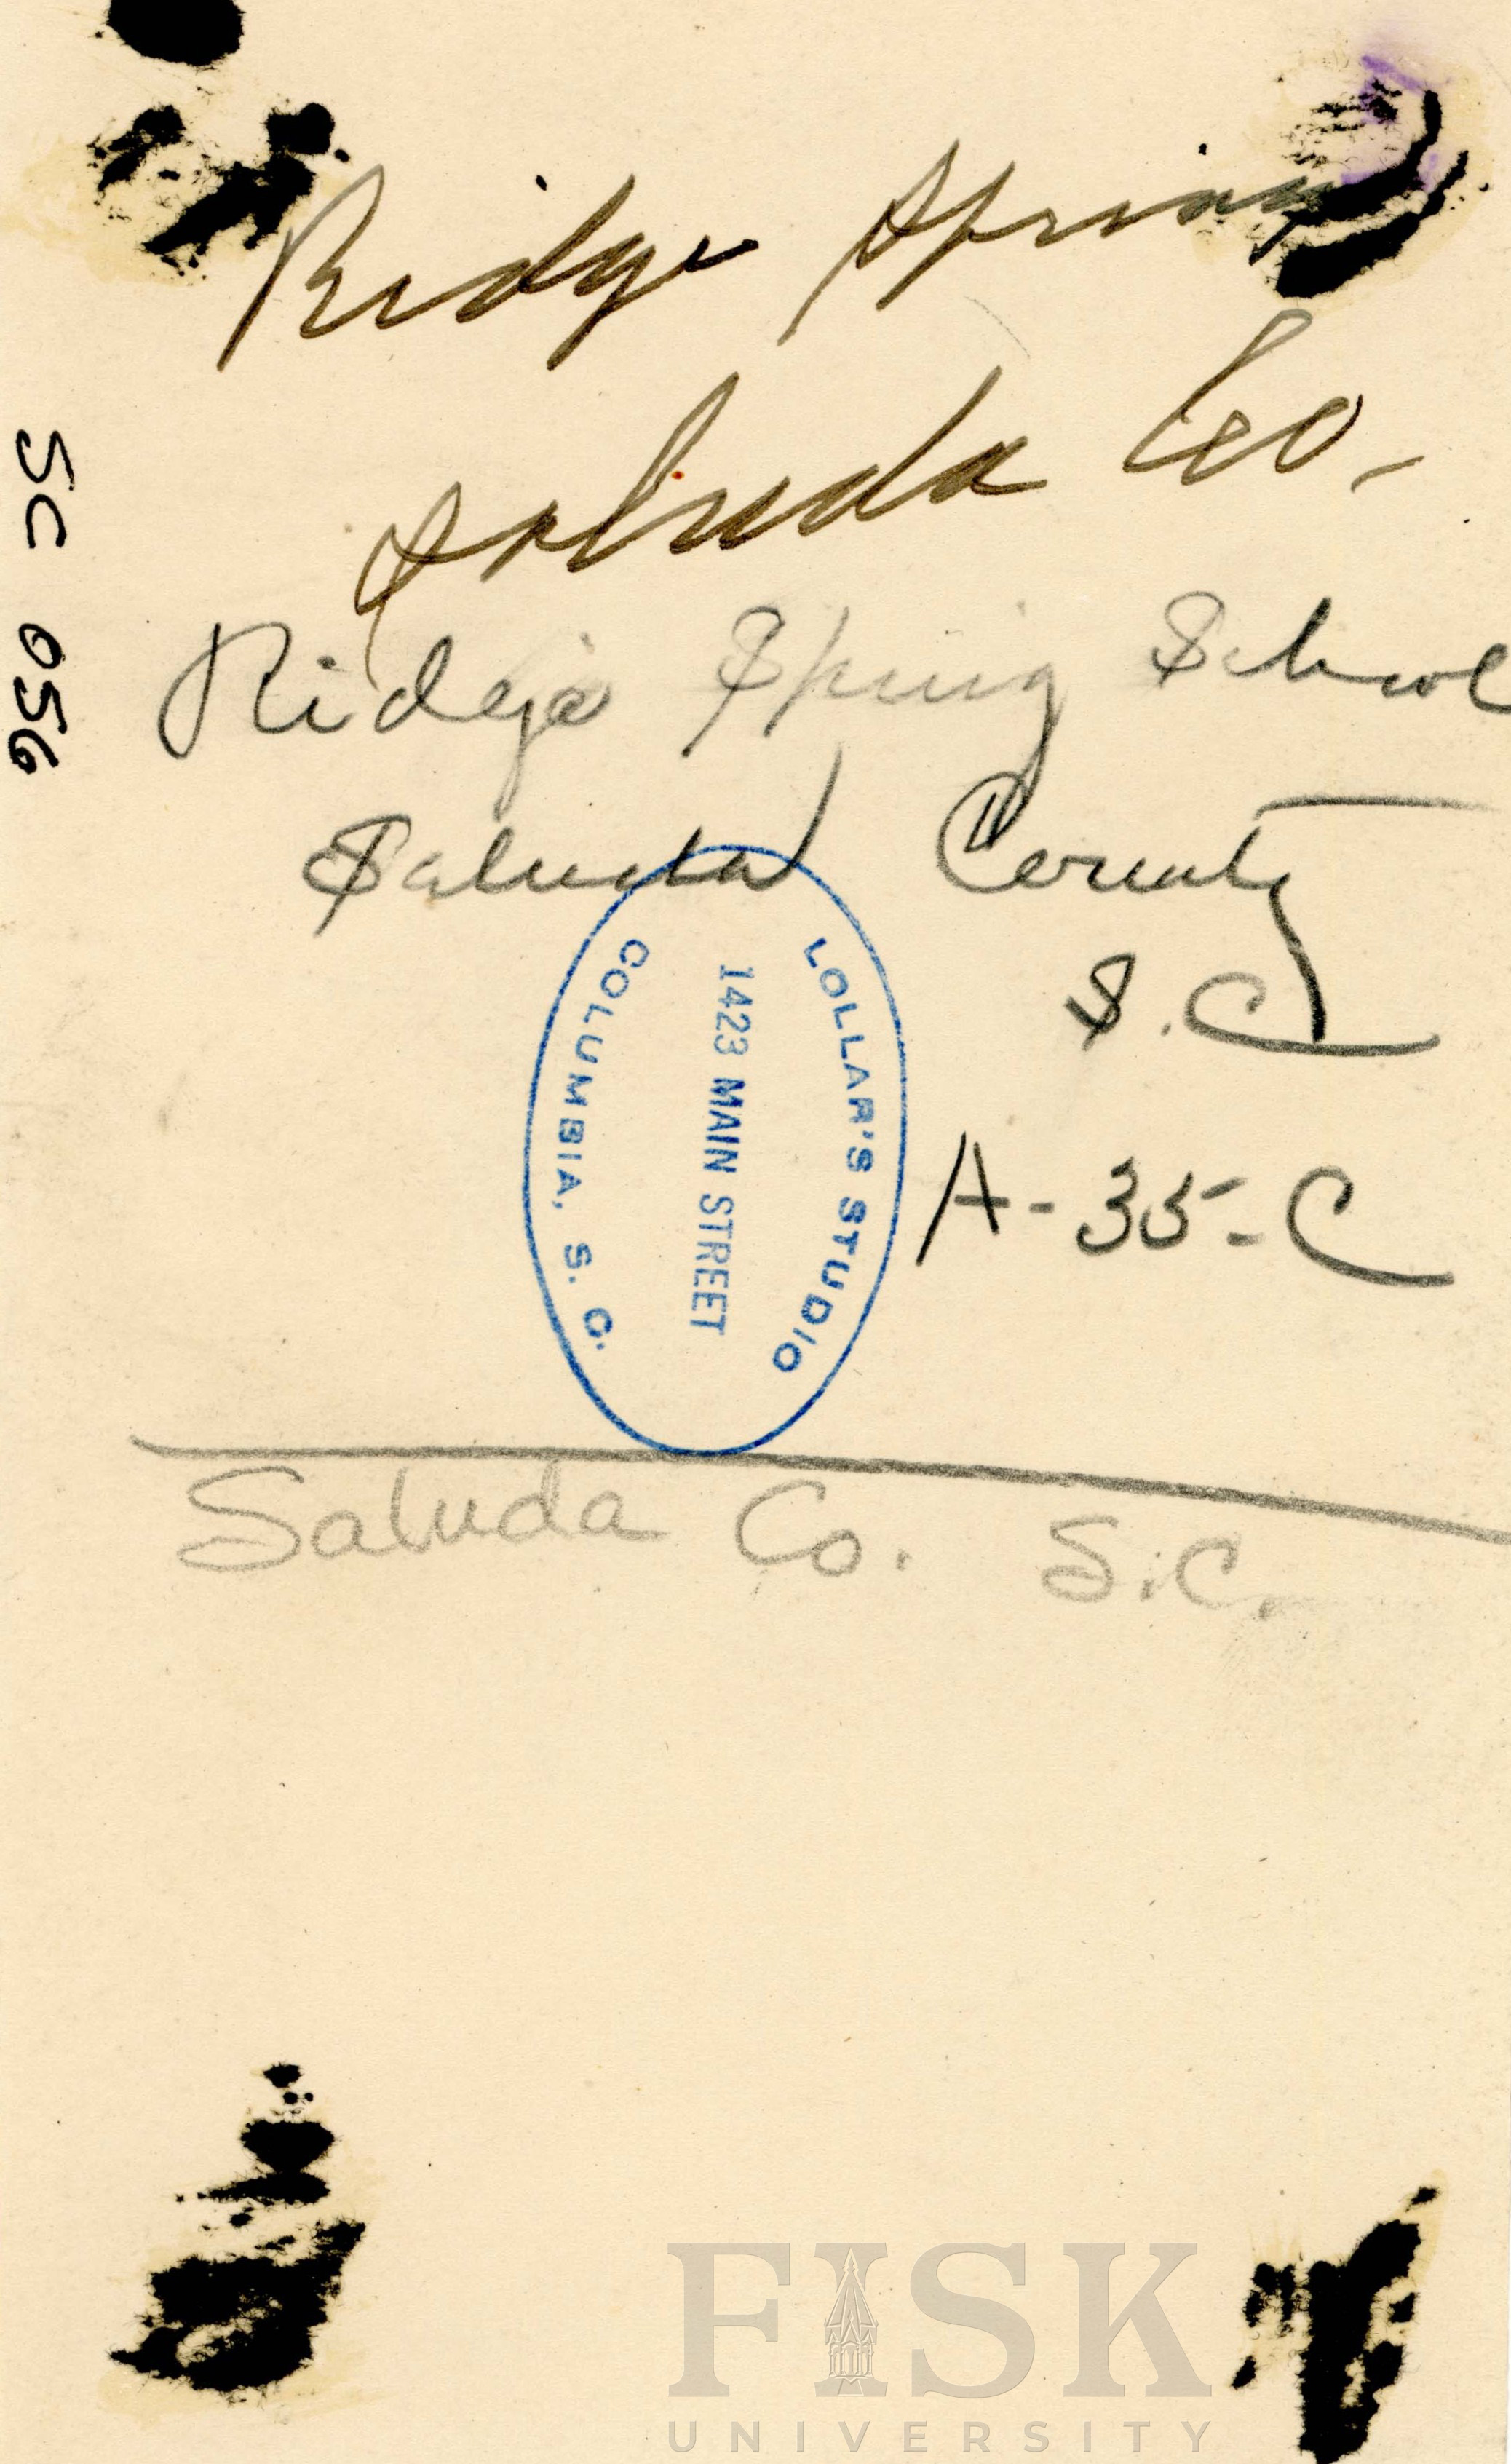 Ridge Spring
Saluda Co.
Ridge Spring School
Saluda County
S.C.
A-35-C
LOLLAR'S STUDIO
1423 MAIN STREET
COLUMBIA, S. C.
Saluda Co. S.C.
SC 056
FISK
UNIVERSITY